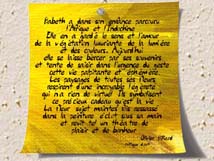 Babeth a dans son enfance parcouru
l'Afrique et l'Indochine
Elle en a gardé le sens et l'amour
de la végétation luxuriante de la lumière
et des couleurs. Aujourd'hui
elle se laisse bercer par ses souvenirs
et tente de saisir dans l'urgence du geste
cette vie palpitante et éphémère.
Les paysages de toutes ses fleurs
respirent d'une incroyable légèreté
qui n'a rien de virtuel. Ils symbolisent
ce précieux cadeau qu'est la vie
La fleur sujet maintes fois ressassé
dans la peinture s'clot sous sa main
et redevient un théâtre de
plaisir et de bonheur